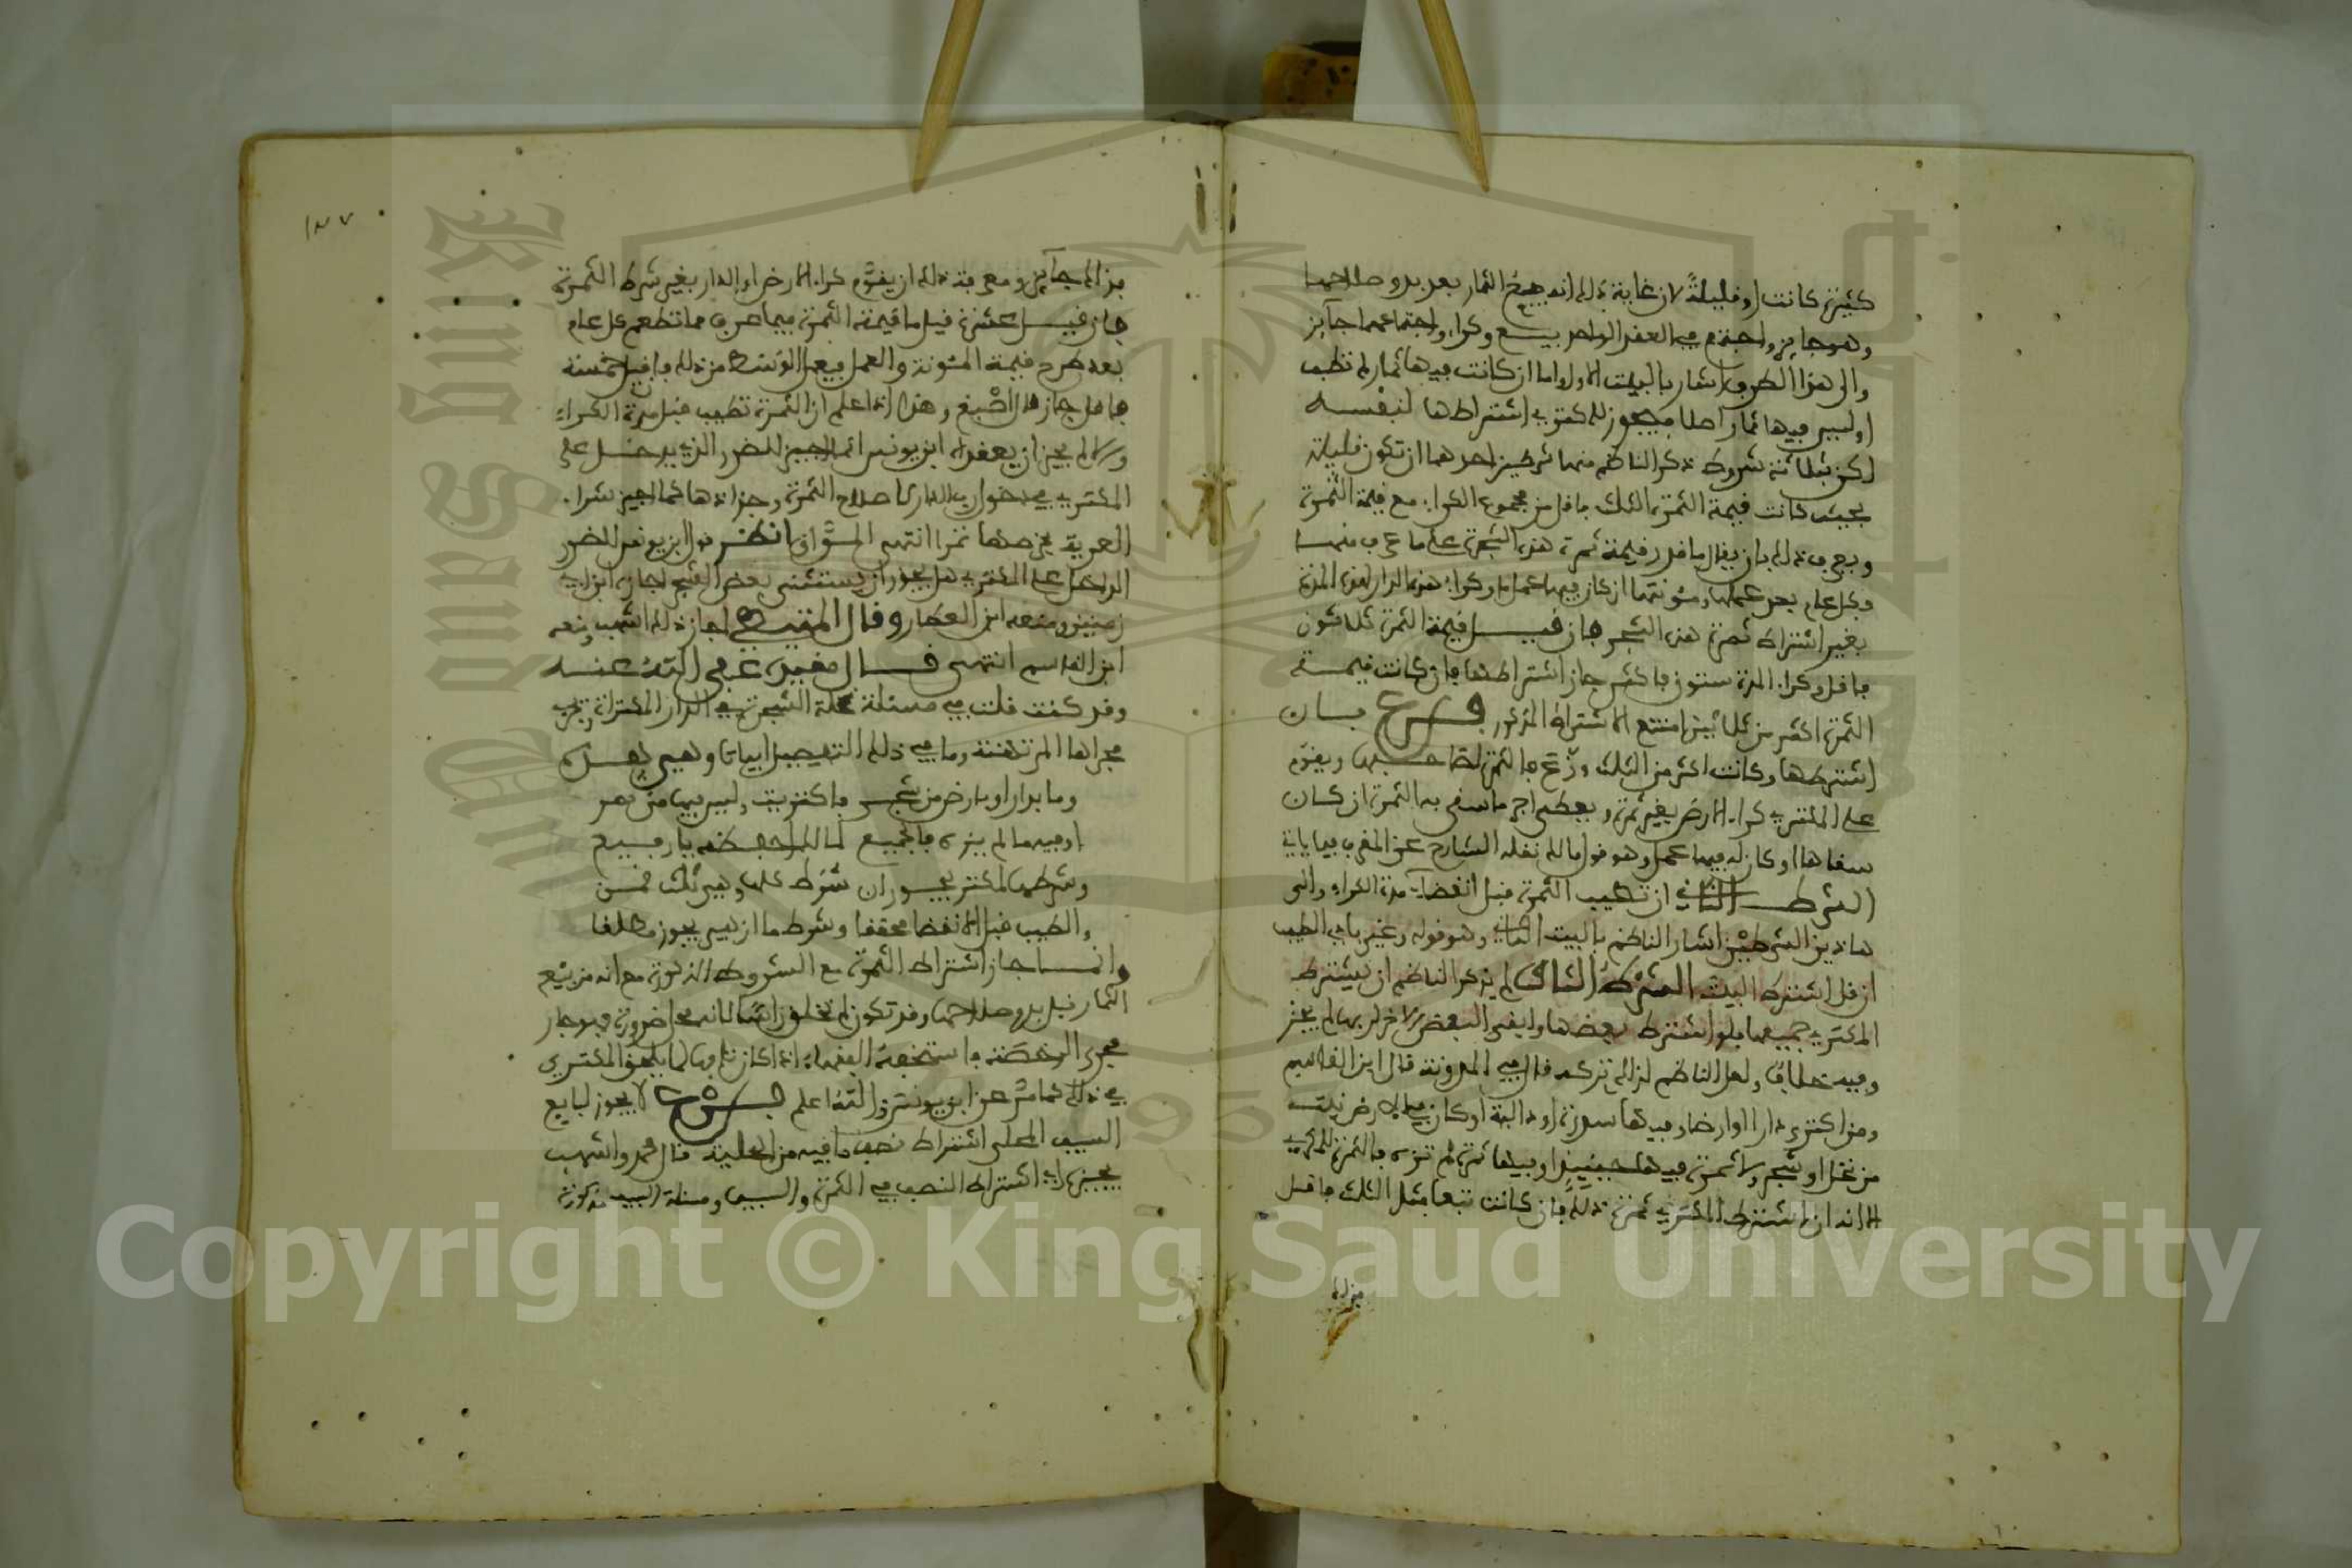 كثيرة كانت او قليلة لان غاية ذلك انه بيع الثمار بعد بدو صلاحها
وهو جايز واجتمع في العقد الواحد بيع وكراء واجتماعهما جايز
والى هذا الطرف اشار بالبيت الاول واما ان كانت فيها ثمار لم تطب
او ليس فيها ثمار اصلا فيجوز للمكتري اشتراطها لنفسه
لكن بثلاثة شروط ذكر الناظم منها شرطين احدهما ان تكون قليلة
بحيث كانت قيمة الثمرة الثلث فاقل من مجموع الكراء مع قيمة الثمرة
ويعرف ذلك بان يقال ما قدر قيمة ثمرة هذه الشجرة على ما عرف منها
وكل عام بعد عملها ومئونتها ان كان فيها عمل وما كراء هذه الدار هذه المدة
بغير اشتراط ثمرة هذه الشجر فان قيل قيمة الثمرة ثلاثون
فاقل وكراء المدة ستون فاكثر جاز اشتراطها فان كانت قيمة
الثمرة اكثر من ثلاثين امتنع الاشتراط المذكور فرع فان
اشترطها وكانت اكثر من الثلث وقع فالثمرة لصاحبها ويقوم
على المكتري كراء الارض بغير ثمرة ويعطى اجر ما سقى به الثمرة ان كان
سقاها او كان له فيها عمل وهو قول مالك نقله الشارح عن المقرب فيما ياتي
الشرط الثاني ان تطيب الثمرة قبل انقضاء مدة الكراء والى
هاذين الشرطين اشار الناظم بالبيت الثاني وهو قوله وغير بادي الطيب
ان قل اشترط البيت الشرط الثالث لم يذكره الناظم ان يشترط
المكتري جميعها فلو اشترط بعضها وابقى البعض الاخر لربها لم يجز
وفيه خلاف ولعل الناظم لذلك تركه قال في المدونة قال ابن القاسم
ومن اكترى دارا او ارضا وفيها سدرة او دالية او كان في الارض نبت
من نخل او شجر ولا ثمرة فيها حينئذ او فيها ثمرة لم تزه فالثمرة للمكري
الا انه ان اشترط المكتري ثمرة ذلك فان كانت تبعا مثل الثلث فاقل
فذلك
١٣٧
فذلك جايز ومعرفة ذلك ان يقوم كراء الارض او الدار بغير شرط الثمرة
فان قيل عشرة قيل ما قيمة الثمرة فيما عرف مما تطعم كل عام
بعد طرح قيمة المئونة والعمل فيعمل الوسط من ذلك فان قيل خمسة
فاقل جاز قال اصبغ وهذا اذا علم ان الثمرة تطيب قبل مدة الكراء
والا لم يجز ان يعقداه ابن يونس انما اجيز للضرر الذي يدخل على
المكتري في دخول رب الدار لاصلاح الثمرة وجذاذها كما اجيز شراء
العرية بخرصها تمرا انتهى المواق انظر قول ابن يونس للضرر
الداخل على المكتري هل يجوز ان يستثنى بعض الشجر اجازه ابن ابي
زمنين ومنعه ابن العطار وقال المتيطي اجاز ذلك اشهب ومنعه
ابن القاسم انتهى قال مقيده عفى الله عنه
وقد كنت قلت في مسئلة غلة الشجرة في الدار المكتراة وتجري
مجراها المرتهنة وما في ذلك التفصيل ابياتا وهي هذه
وما بدار او بارض من شجر فاكتريت وليس فيها من ثمر
او فيه ما لم يزه فالجميع لمالك احفظه يا رفيع
وشرطها لمكتر يجوز ان شرط كلها وهي ثلث فمن
والطيب قبل الانقضا محققا وشرط ما ازهي يجوز مطلقا
وانما جاز اشتراط الثمرة مع الشروط المذكورة مع انه من بيع
الثمار قبل بدو صلاحها وقد تكون لم تخلق راسا لانه محل ضرورة فهو جار
مجرى الرخصة فاستخفه الفقهاء اذا كان تبعا لما يلحق المكتري
في ذلك كما مر عن ابن يونس والله اعلم فرع لا يجوز لبايع
السيف المحلى اشتراط نصف ما فيه من الحلية قال محمد واشهب
يجيز اي اشتراط النصف في الثمرة والسيف ومسئلة السيف مذكورة
Copyright © King Saud University
King Saud University
1957